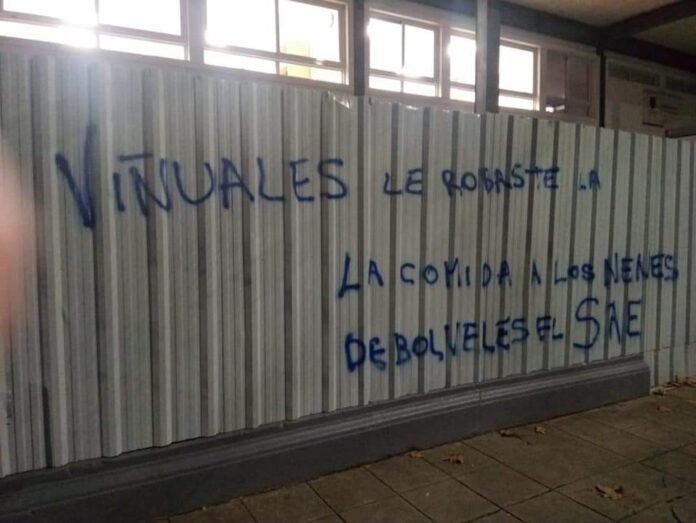 VIÑUALES LE ROBASTE LA
LA COMIDA A LOS NENES
DEBOLVELES EL SAE